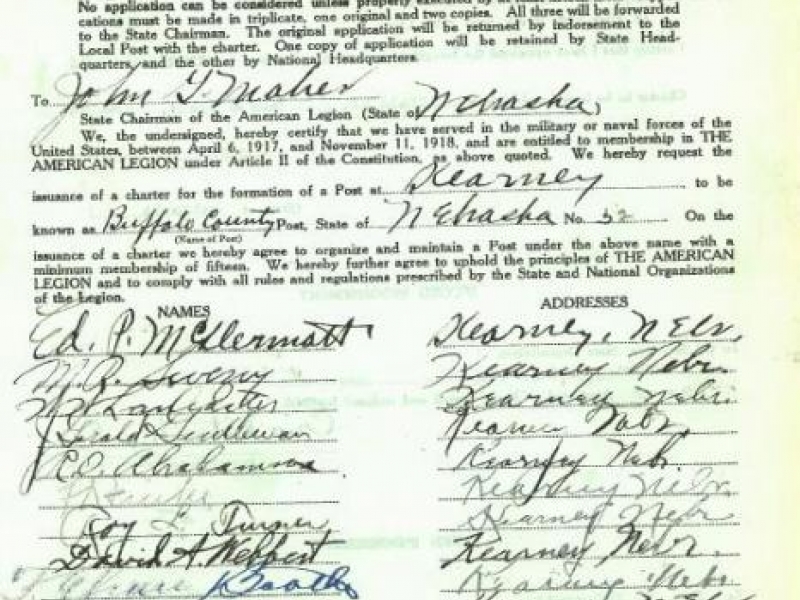 No application can be considered unless properly executed by
cations must be made in triplicate, one original and two copies. All three will be forwarded
to the State Chairman. The original application will be returned by indorsement to the
Local Post with the charter. One copy of application will be retained by State Head-
quarters, and the other by National Headquarters.
To John G. Maher
State Chairman of the American Legion (State of Nebraska,
We, the undersigned, hereby certify that we have served in the military or naval forces of the
United States, between April 6, 1917, and November 11, 1918, and are entitled to membership in THE
AMERICAN LEGION under Article II of the Constitution, as above quoted. We hereby request the
issuance of a charter for the formation of a Post at Kearney to be
known as Buffalo County Post, State of Nebraska No. 52 On the
(Name of Post)
issuance of a charter we hereby agree to organize and maintain a Post under the above name with a
minimum membership of fifteen. We hereby further agree to uphold the principles of THE AMERICAN
LEGION and to comply with all rules and regulations prescribed by the State and National Organizations
of the Legion.
NAMES ADDRESSES
Ed. P. McDermott Kearney, Nebr.
M. R. Sweny Kearney Nebr.
Kearney Nebr.
Kearney Nebr.
R.O. Abrahamson Kearney Nebr.
Kearney Nebr.
Roy L. Turner Kearney Nebr
David A. Webbert Kearney, Nebr.
Booth Kearney Nebr.